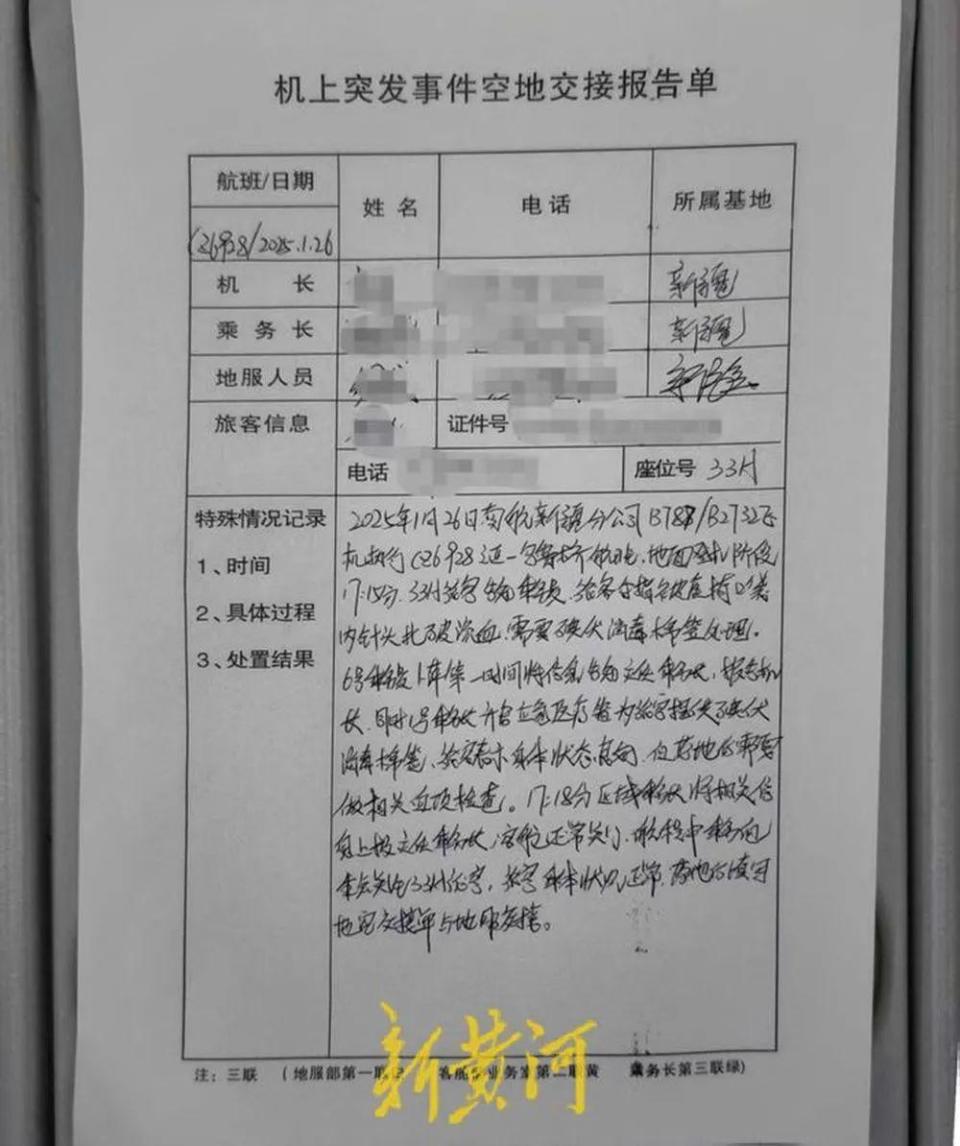 机上突发事件空地交接报告单
航班/日期 姓名 电话 所属基地
CZ6928/2025.1.26
机长 新疆
乘务长 新疆
地服人员
旅客信息 证件号
电话 座位号 33H
特殊情况记录
1、时间
2、具体过程
3、处置结果
2025年1月26日南航新疆分公司B787/B2732飞
机执行CZ6928 航班,地面登机阶段
17:15分,33H旅客告知乘务员,旅客手指被座椅口袋
内针头扎破流血,需要碘伏消毒棉签处理。
6号乘务员 第一时间将信息告知主任乘务长,报告机
长,同时1号乘务长开启应急医疗箱为旅客提供碘伏
消毒棉签,旅客表示身体状态良好,但落地后需要
做相关血项检查。17:18分区域乘务长将相关信
息上报主任乘务长,客舱正常关门,航程中乘务组
全程关注33H旅客,旅客身体状况正常,落地后填写
地空交接单与地服交接。
新黄河
注:三联 (地服部第一联 客舱部业务室第二联黄 乘务长第三联绿)